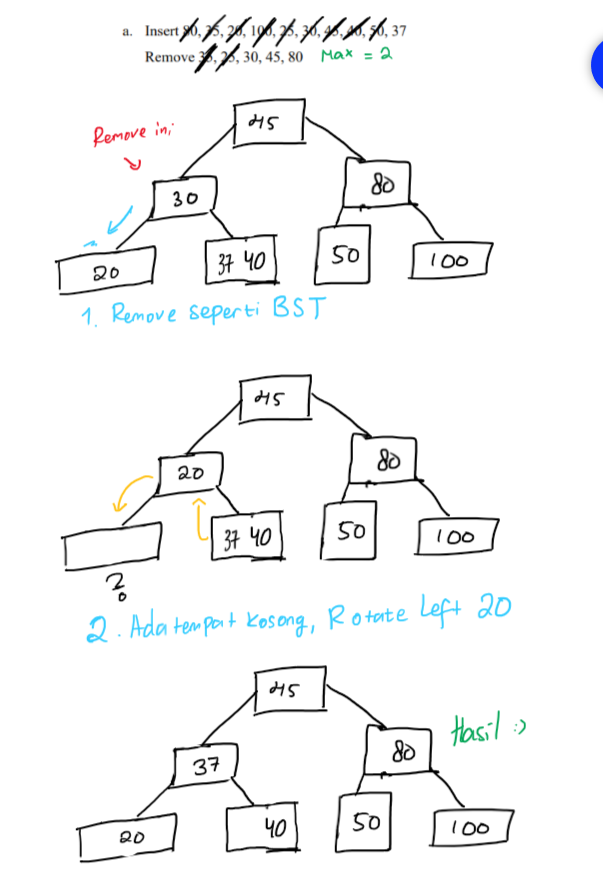 a. Insert 80, 35, 20, 100, 25, 30, 45, 40, 50, 37
Remove 35, 25, 30, 45, 80 Max = 2
45
Remove ini
30
80
20
37 40
50
100
1. Remove seperti BST
45
20
80
37 40
50
100
?
2. Ada tempat kosong, Rotate Left 20
45
Hasil :)
37
80
20
40
50
100